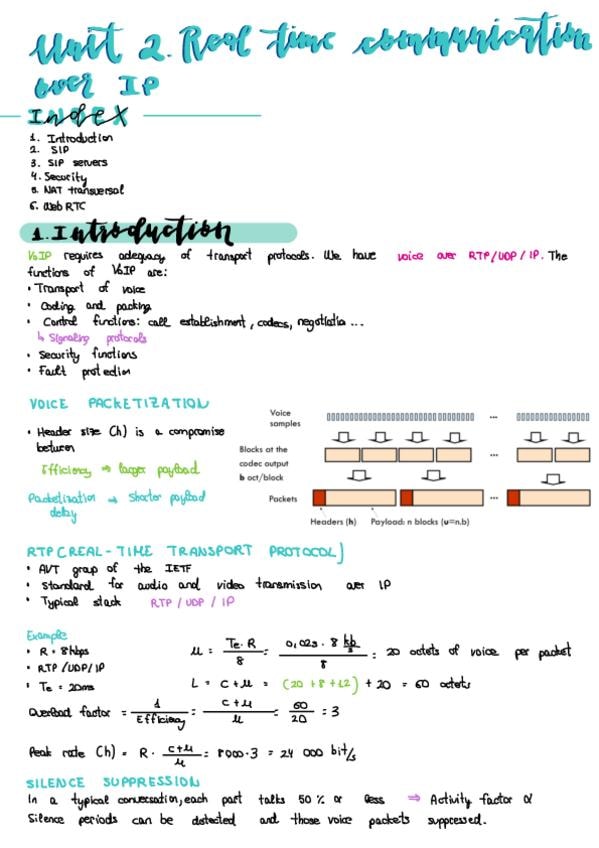 Unit 2. Real time communication
over IP
INDEX
1. Introduction
2. SIP
3. SIP servers
4. Security
5. NAT transversal
6. Web RTC
1. Introduction
VoIP requires adequacy of transport protocols. We have voice over RTP/UDP/IP. The
functions of VoIP are:
• Transport of voice
• Coding and packing
• Control functions: call establishment, codecs, negotiatio ...
↳ Signaling protocols
• Security functions
• Fault protection
VOICE PACKETIZATION
• Header size (h) is a compromise
between
Efficiency ⇒ larger payload
Packetization → Shorter payload
delay
Voice
samples
...
Blocks at the
codec output
b oct/block
Packets
...
Headers (h) Payload: n blocks (u=n.b)
RTP (REAL-TIME TRANSPORT PROTOCOL)
• AVT group of the IETF
• Standard for audio and video transmission over IP
• Typical stack RTP / UDP / IP
Example
• R = 8kbps
• RTP/UDP/IP
• Te = 20ms
u = Te·R / 8 = 0,02s · 8 kb/s / 8 = 20 octets of voice per packet
L = c+u = (20 + 8 + 12) + 20 = 60 octets
Overload factor = 1 / Efficiency = c+u / u = 60 / 20 = 3
Peak rate (h) = R · c+u / u = 8000·3 = 24 000 bit/s
SILENCE SUPPRESSION
In a typical conversation, each part talks 50 % or less ⇒ Activity factor α
Silence periods can be detected and those voice packets suppressed.